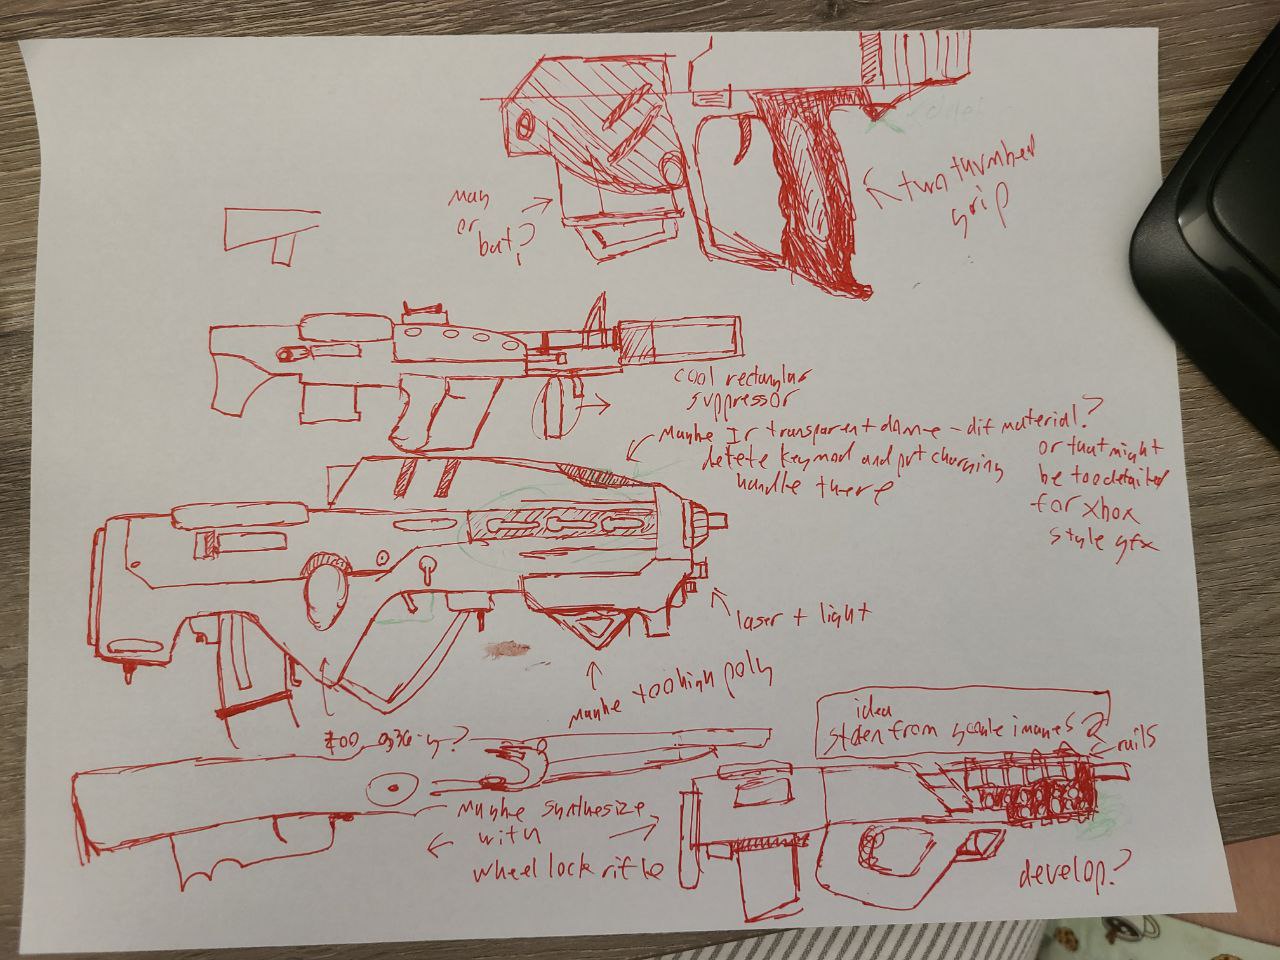 mag
or
bat?
two turmber
grip
cool rectangular
suppressor
maybe Ir transparent dome - dif material?
detete keymod and put charging
handle there
or that might
be too detailed
for xbox
style gfx
laser + light
maybe too high poly
too g36-y?
idea
stolen from google images 2
rails
maybe synthesize
with
wheel lock rifle
develop?